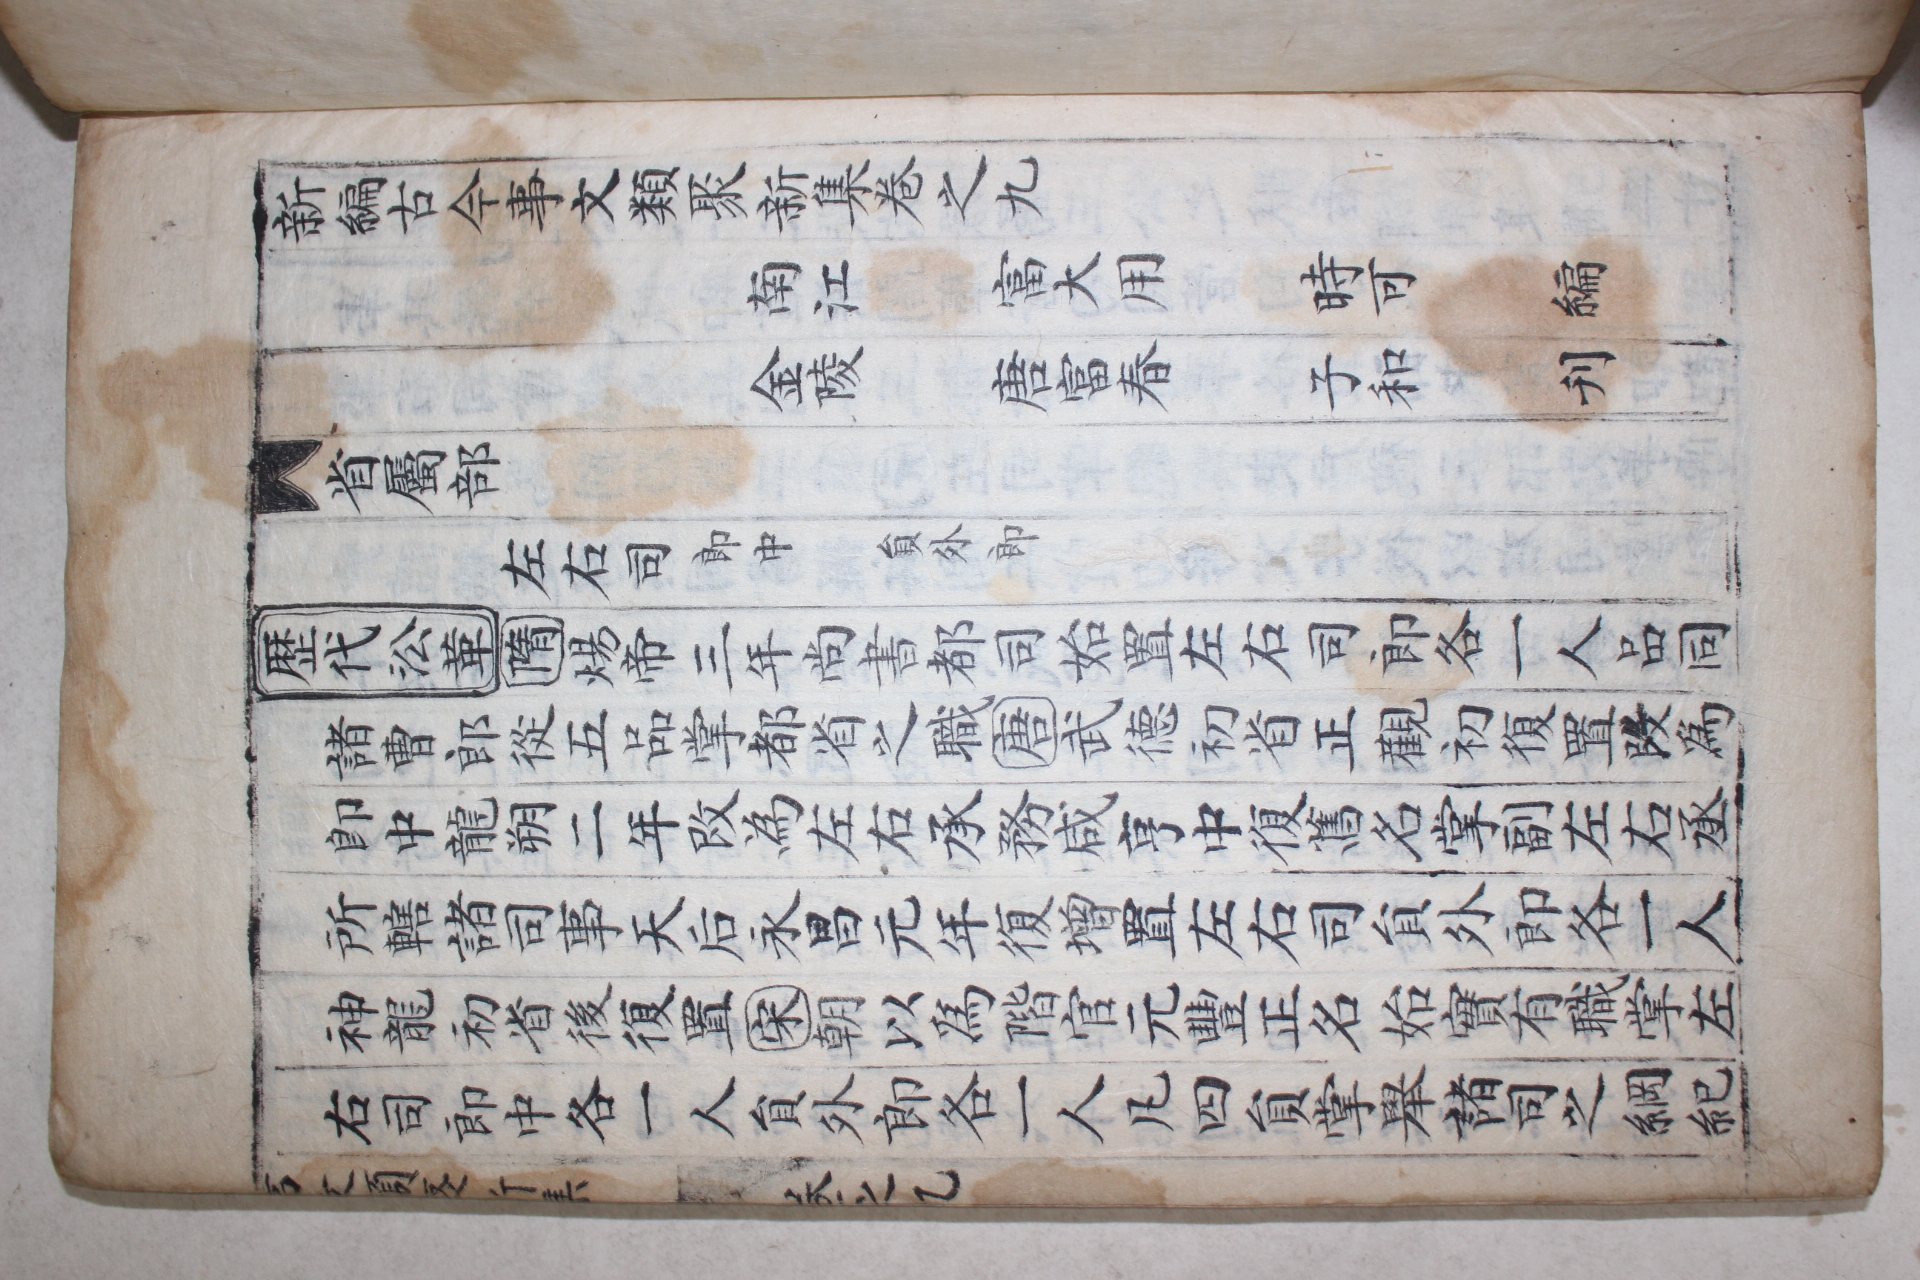 新編古今事文類聚新集卷之九
南江 富大用 時可 編
金陵 唐富春 子和 刋
省屬部
左右司 郎中 員外郎
歴代㳂革 隋 煬帝三年尚書都司始置左右司郎各一人品同
諸曹郎從五品掌都省之職 唐 武德初省正觀初復置改為
郎中龍朔二年改為左右承務咸亨中復舊名掌副左右丞
所轄諸司事天后永昌元年復增置左右司員外郎各一人
神龍初省後復置 宋 朝以為階官元豐正名始實有職掌左
右司郎中各一人員外郎各一人凡四員掌舉諸司之綱紀